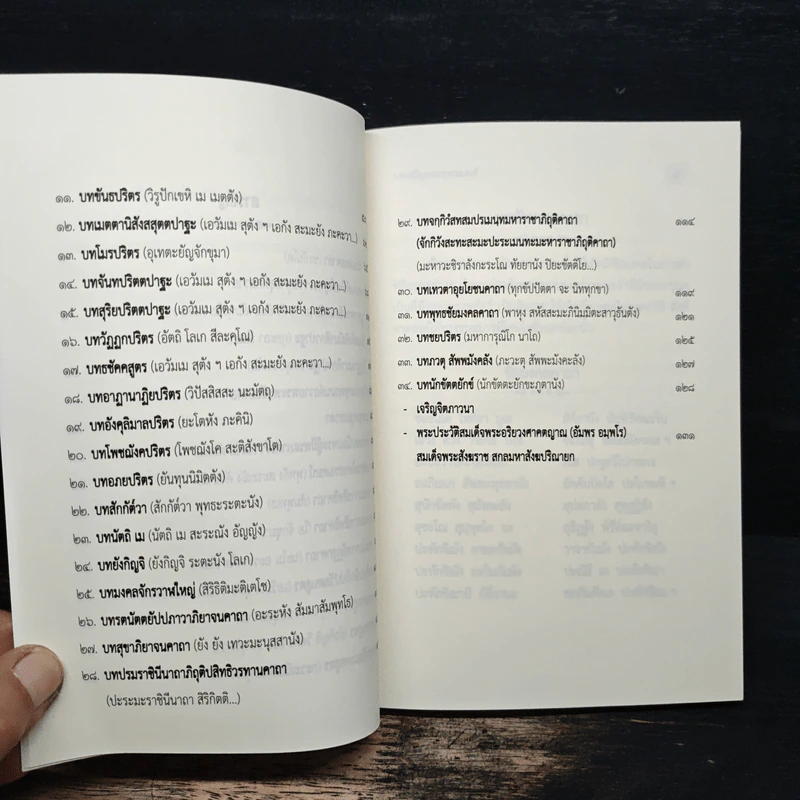 ๑๑. บทขันธปริตร (วิรูปักเขหิ เม เมตตัง)
๑๒. บทเมตตานิสังสสุตตปาฐะ (เอวัมเม สุตัง ฯ เอกัง สะมะยัง ภะคะวา...)
๑๓. บทโมรปริตร (อุเทตะยัญจักขุมา)
๑๔. บทจันทปริตตปาฐะ (เอวัมเม สุตัง ฯ เอกัง สะมะยัง ภะคะวา...)
๑๕. บทสุริยปริตตปาฐะ (เอวัมเม สุตัง ฯ เอกัง สะมะยัง ภะคะวา...)
๑๖. บทวัฏฏกปริตร (อัตถิ โลเก สีละคุโณ)
๑๗. บทธชัคคสูตร (เอวัมเม สุตัง ฯ เอกัง สะมะยัง ภะคะวา...)
๑๘. บทอาฏานาฏิยปริตร (วิปัสสิสสะ นะมัตถุ)
๑๙. บทอังคุลิมาลปริตร (ยะโตหัง ภะคินิ)
๒๐. บทโพชฌังคปริตร (โพชฌังโค สะติสังขาโต)
๒๑. บทอภยปริตร (ยันทุนนิมิตตัง)
๒๒. บทสักกัต๎วา (สักกัต๎วา พุทธะระตะนัง)
๒๓. บทนัตถิ เม (นัตถิ เม สะระณัง อัญญัง)
๒๔. บทยังกิญจิ (ยังกิญจิ ระตะนัง โลเก)
๒๕. บทมงคลจักรวาฬใหญ่ (สิริธิติมะติเตโช)
๒๖. บทรตนัตตยัปปภาวาภิยาจนคาถา (อะระหัง สัมมาสัมพุทโธ)
๒๗. บทสุขาภิยาจนคาถา (ยัง ยัง เทวะมะนุสสานัง)
๒๘. บทปรมราชินีนาถาภิถุติปสิทธิวรทานคาถา
(ปะระมะราชินีนาถา สิริกิตติ...)
๒๙. บทจกฺกิวํสทสมปรเมนทมหาราชาภิถุติคาถา ๑๑๔
(จักกิวังสะทะสะมะปะระเมนทะมะหาราชาภิถุติคาถา)
(มะหาวะชิราลังกะระโณ ทัยยานัง ปิยะขัตติโย...)
๓๐. บทเทวตาอุยโยชนคาถา (ทุกขัปปัตตา จะ นิททุกขา) ๑๑๙
๓๑. บทพุทธชัยมงคลคาถา (พาหุง สหัสสะมะภินิมมิตะสาวุธันตัง) ๑๒๑
๓๒. บทชยปริตร (มหาการุณิโก นาโถ) ๑๒๕
๓๓. บทภวตุ สัพพมังคลัง (ภะวะตุ สัพพะมังคะลัง) ๑๒๗
๓๔. บทนักขัตตยักข์ (นักขัตตะยักขะภูตานัง) ๑๒๘
- เจริญจิตภาวนา
- พระประวัติสมเด็จพระอริยวงศาคตญาณ (อัมพร อมฺพโร) ๑๓๑
สมเด็จพระสังฆราช สกลมหาสังฆปริณายก